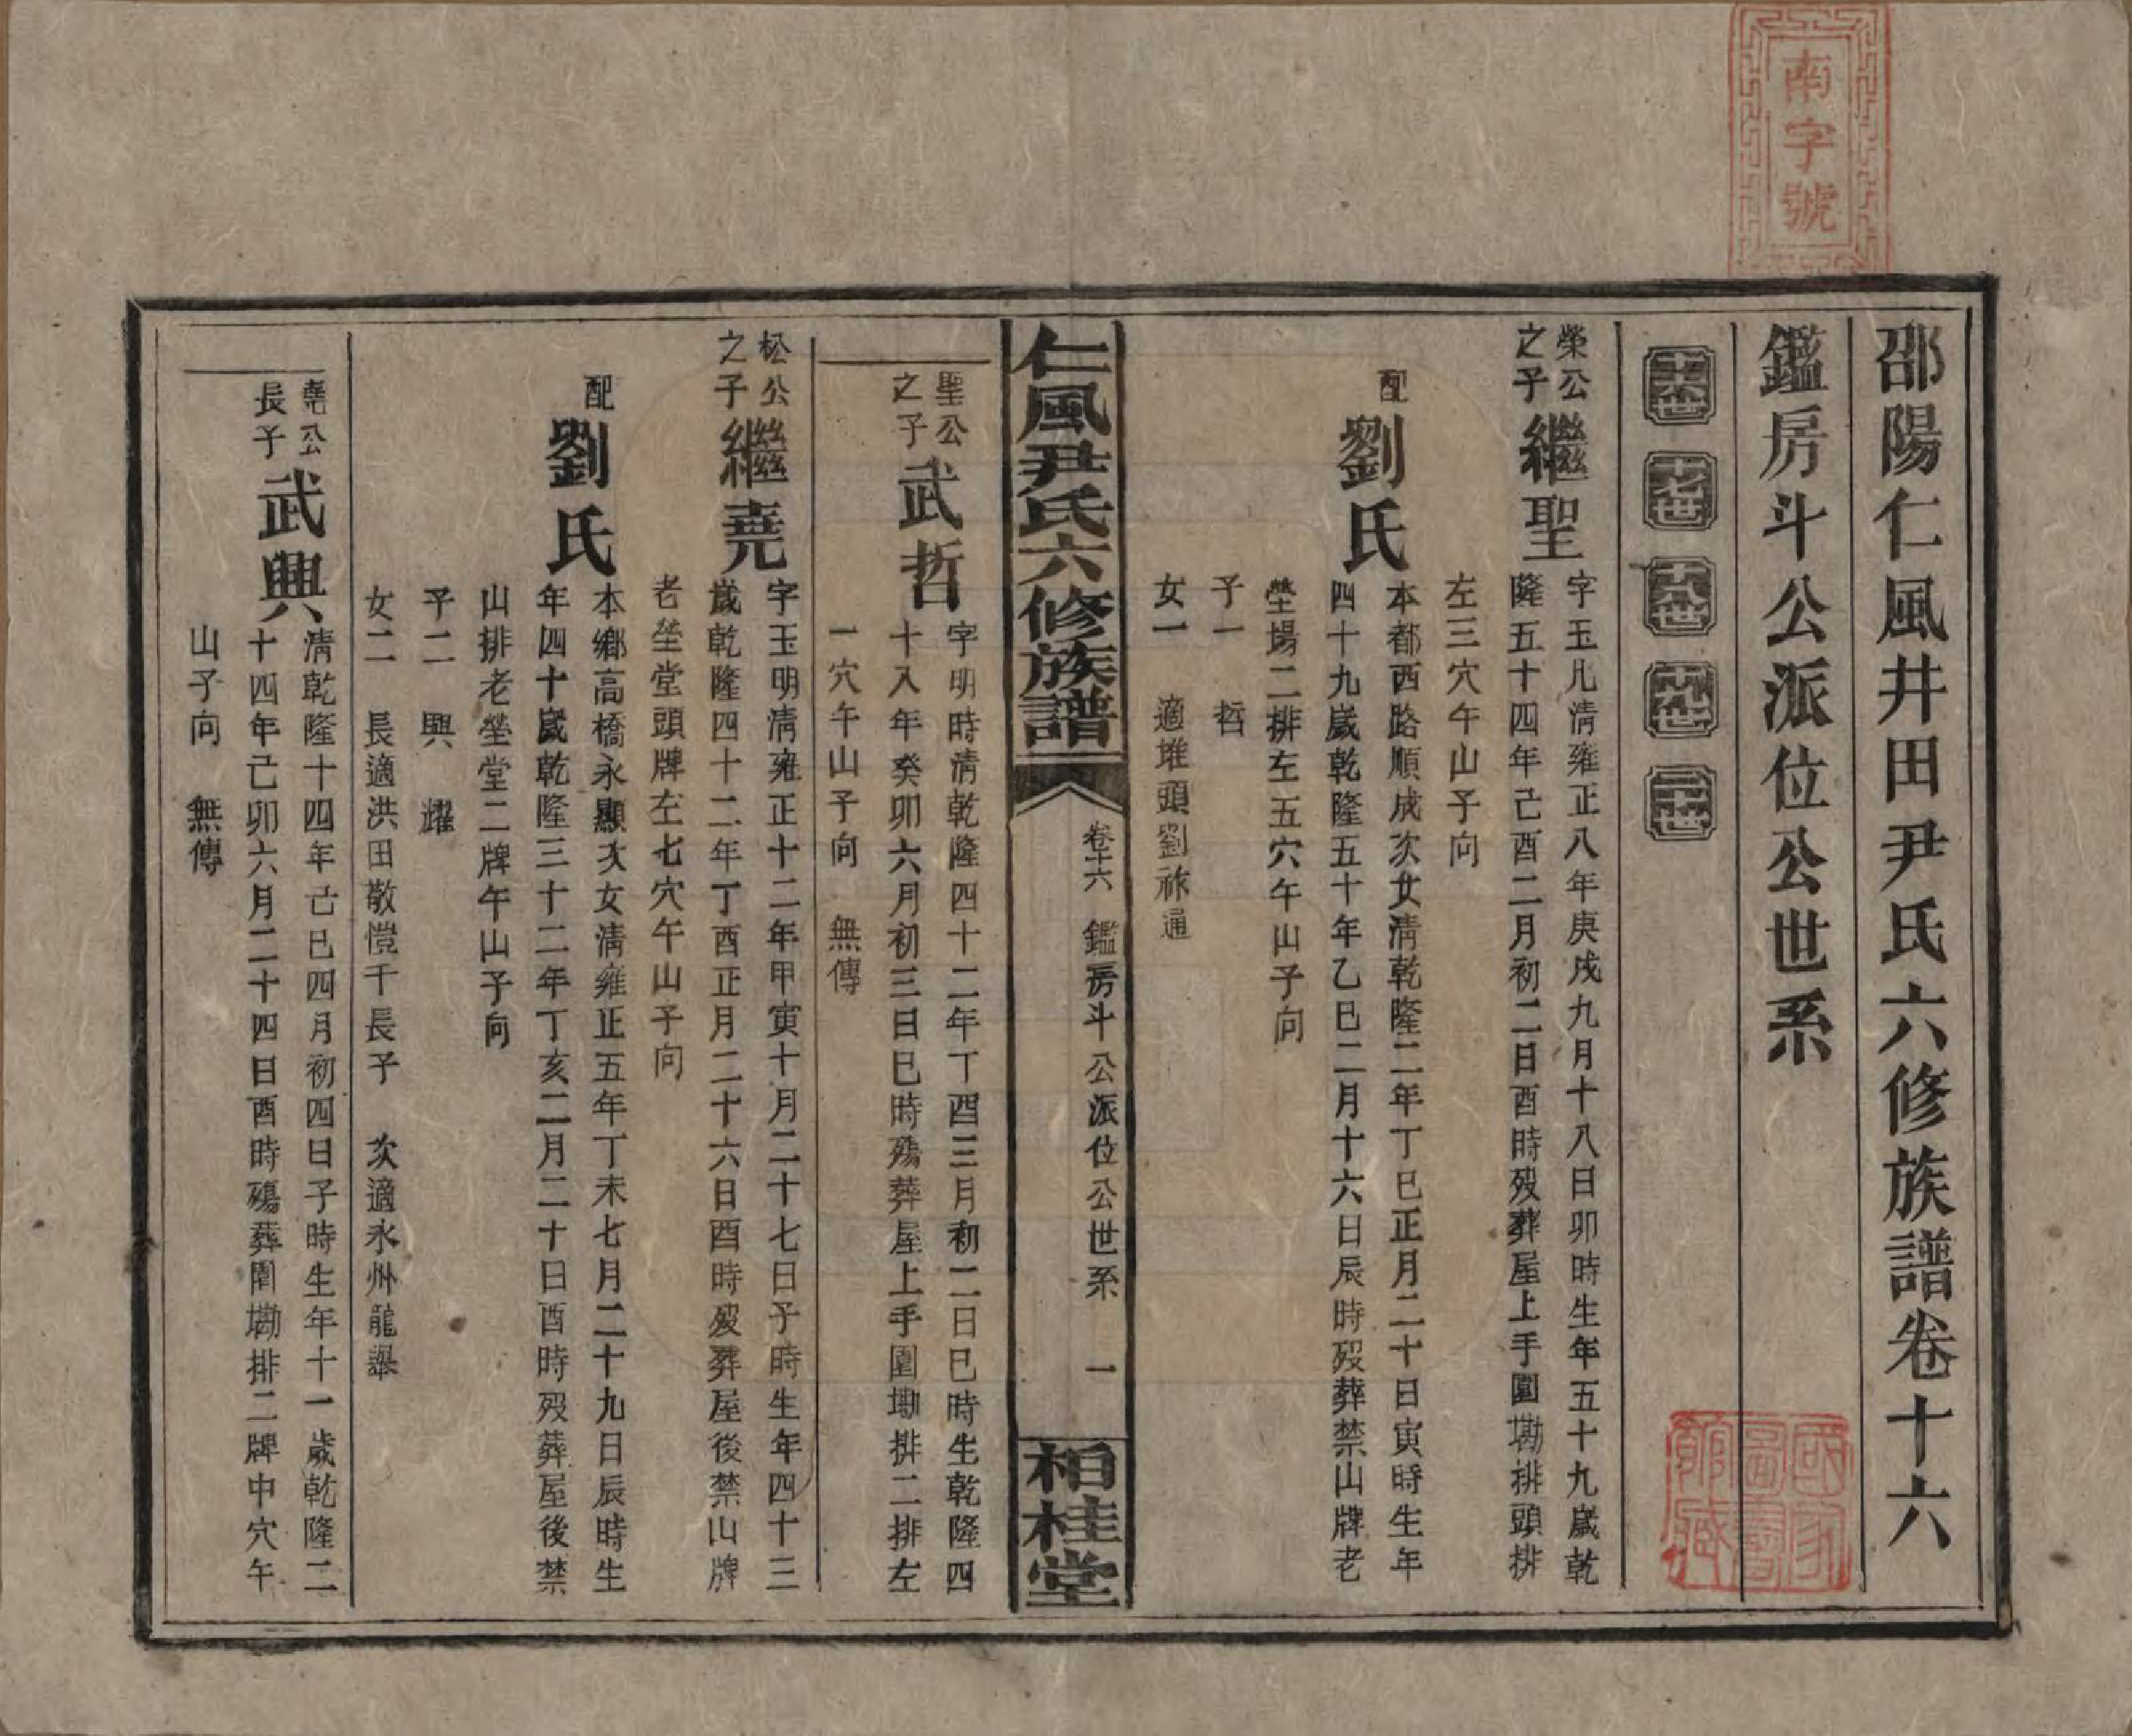 南字號
邵陽仁風井田尹氏六修族譜卷十六
鑑房斗公派位公世系
十六世 十七世 十八世 十九世 二十世
榮公之子 繼聖 字玉凡清雍正八年庚戌九月十八日卯時生年五十九歲乾
隆五十四年己酉二月初二日酉時歿葬屋上手園墈排頭排
左三穴午山子向
配 劉氏 本都西路順成次女清乾隆二年丁巳正月二十日寅時生年
四十九歲乾隆五十年乙巳二月十六日辰時歿葬禁山牌老
塋場二排左五穴午山子向
子一 哲
女一 適堆頭劉祚通
仁風尹氏六修族譜 卷十六 鑑房斗公派位公世系 一 柏桂堂
聖公之子 武哲 字明時清乾隆四十二年丁酉三月初二日巳時生乾隆四
十八年癸卯六月初三日巳時殤葬屋上手園墈排二排左
一穴午山子向 無傳
松公之子 繼堯 字玉明清雍正十二年甲寅十月二十七日子時生年四十三
歲乾隆四十二年丁酉正月二十六日酉時歿葬屋後禁山牌
老塋堂頭牌左七穴午山子向
配 劉氏 本鄉高橋永顯次女清雍正五年丁未七月二十九日辰時生
年四十歲乾隆三十二年丁亥二月二十日酉時歿葬屋後禁
山排老塋堂二牌午山子向
子二 興 耀
女二 長適洪田敬愷千長子 次適永州龍舉
堯公長子 武興 清乾隆十四年己巳四月初四日子時生年十一歲乾隆二
十四年己卯六月二十四日酉時殤葬園墈排二牌中穴午
山子向 無傳
國家圖書館藏